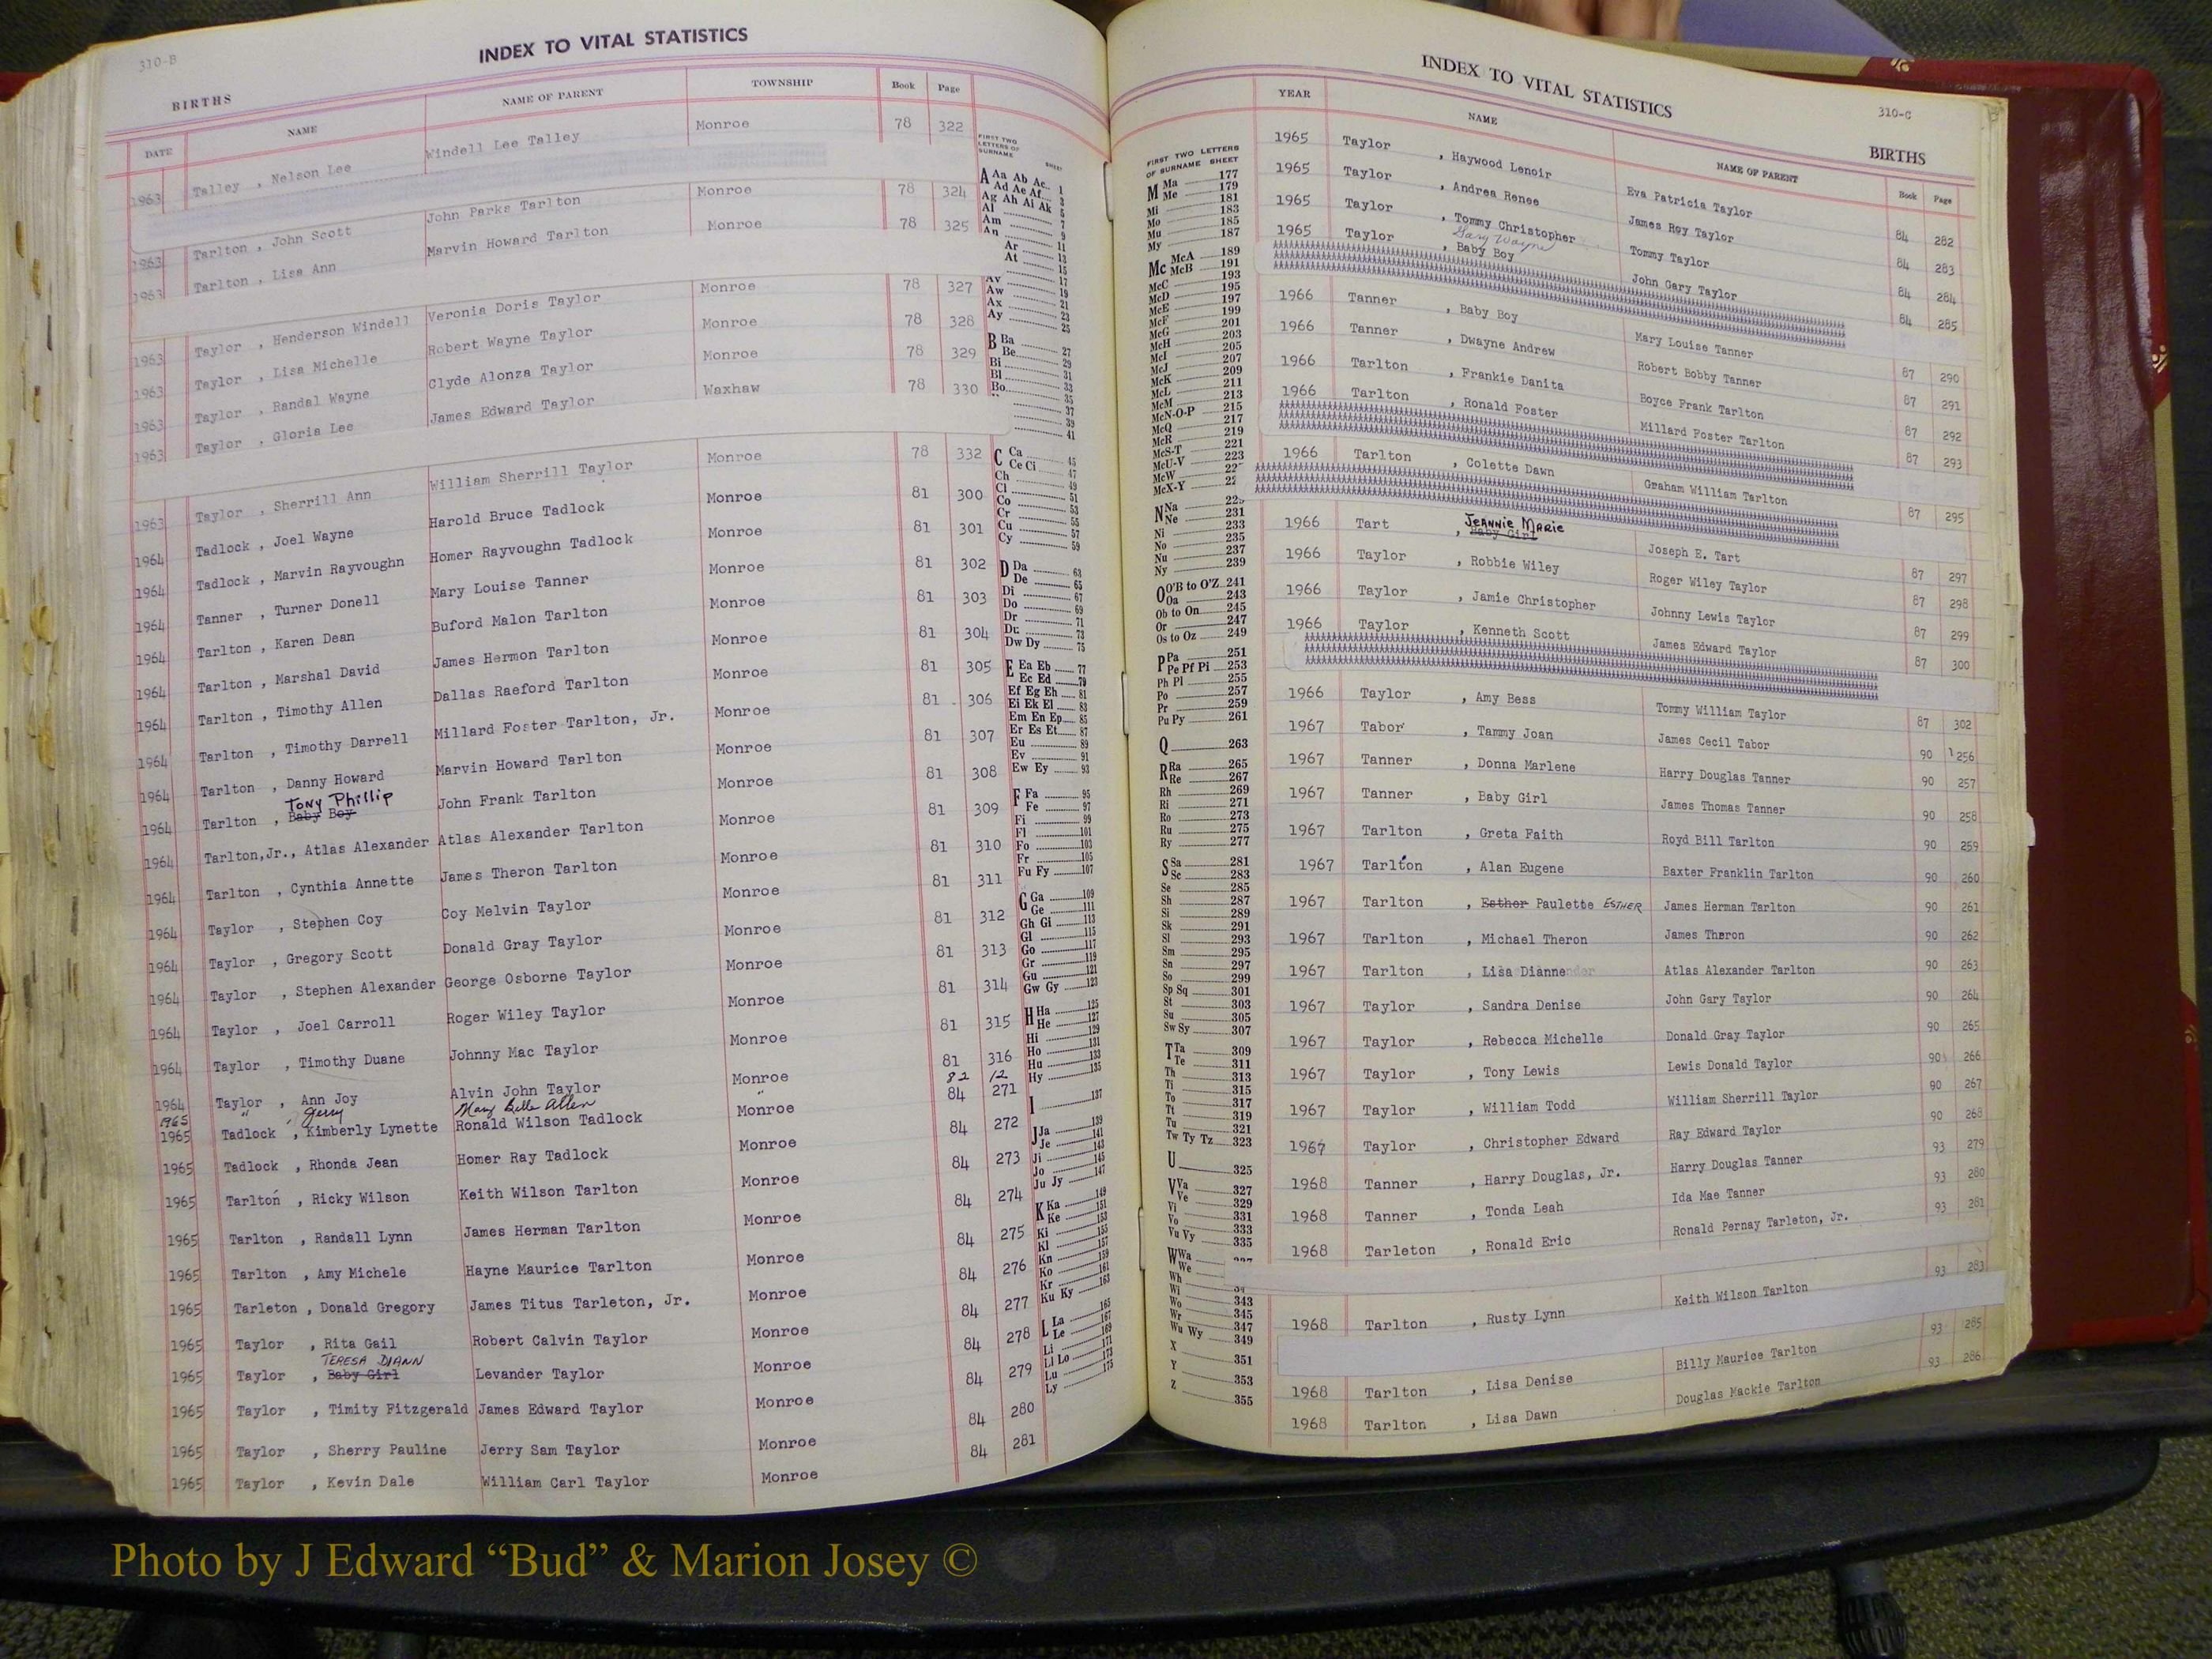 310-B
INDEX TO VITAL STATISTICS
BIRTHS
DATE NAME NAME OF PARENT TOWNSHIP Book Page
1963 Talley , Nelson Lee Windell Lee Talley Monroe 78 322
1963 Tarlton , John Scott John Parks Tarlton Monroe 78 324
1963 Tarlton , Lisa Ann Marvin Howard Tarlton Monroe 78 325
1963 Taylor , Henderson Windell Veronia Doris Taylor Monroe 78 327
1963 Taylor , Lisa Michelle Robert Wayne Taylor Monroe 78 328
1963 Taylor , Randal Wayne Clyde Alonza Taylor Monroe 78 329
1963 Taylor , Gloria Lee James Edward Taylor Waxhaw 78 330
1963 Taylor , Sherrill Ann William Sherrill Taylor Monroe 78 332
1964 Tadlock , Joel Wayne Harold Bruce Tadlock Monroe 81 300
1964 Tadlock , Marvin Rayvoughn Homer Rayvoughn Tadlock Monroe 81 301
1964 Tanner , Turner Donell Mary Louise Tanner Monroe 81 302
1964 Tarlton , Karen Dean Buford Malon Tarlton Monroe 81 303
1964 Tarlton , Marshal David James Hermon Tarlton Monroe 81 304
1964 Tarlton , Timothy Allen Dallas Raeford Tarlton Monroe 81 305
1964 Tarlton , Timothy Darrell Millard Foster Tarlton, Jr. Monroe 81 306
1964 Tarlton , Danny Howard Marvin Howard Tarlton Monroe 81 307
Tony Phillip
1964 Tarlton , Baby Boy John Frank Tarlton Monroe 81 308
1964 Tarlton,Jr., Atlas Alexander Atlas Alexander Tarlton Monroe 81 309
1964 Tarlton , Cynthia Annette James Theron Tarlton Monroe 81 310
1964 Taylor , Stephen Coy Coy Melvin Taylor Monroe 81 311
1964 Taylor , Gregory Scott Donald Gray Taylor Monroe 81 312
1964 Taylor , Stephen Alexander George Osborne Taylor Monroe 81 313
1964 Taylor , Joel Carroll Roger Wiley Taylor Monroe 81 314
1964 Taylor , Timothy Duane Johnny Mac Taylor Monroe 81 315
1964 Taylor , Ann Joy Alvin John Taylor Monroe 81 316
1965 " Jerry Mary Belle Allen " 82 12
1965 Tadlock , Kimberly Lynette Ronald Wilson Tadlock Monroe 84 271
1965 Tadlock , Rhonda Jean Homer Ray Tadlock Monroe 84 272
1965 Tarlton , Ricky Wilson Keith Wilson Tarlton Monroe 84 273
1965 Tarlton , Randall Lynn James Herman Tarlton Monroe 84 274
1965 Tarlton , Amy Michele Hayne Maurice Tarlton Monroe 84 275
1965 Tarleton , Donald Gregory James Titus Tarleton, Jr. Monroe 84 276
1965 Taylor , Rita Gail Robert Calvin Taylor Monroe 84 277
TERESA DIANN
1965 Taylor , Baby Girl Levander Taylor Monroe 84 278
1965 Taylor , Timity Fitzgerald James Edward Taylor Monroe 84 279
1965 Taylor , Sherry Pauline Jerry Sam Taylor Monroe 84 280
1965 Taylor , Kevin Dale William Carl Taylor Monroe 84 281
FIRST TWO
LETTERS OF
SURNAME SHEET
A Aa Ab Ac 1
Ad Ae Af 3
Ag Ah Ai Ak 5
Al 7
Am 9
An 11
Ar 13
At 15
Av 17
Aw 19
Ax 21
Ay 23
25
B Ba 27
Be 29
Bi 31
Bl 33
Bo 35
37
39
41
C Ca 45
Ce Ci
Ch 47
Cl 49
Co 51
Cr 53
Cu 55
Cy 57
59
D Da 63
De 65
Di 67
Do 69
Dr 71
Du 73
Dw Dy 75
E Ea Eb 77
Ec Ed 79
Ef Eg Eh 81
Ei Ek El 83
Em En Ep 85
Er Es Et 87
Eu 89
Ev 91
Ew Ey 93
F Fa 95
Fe 97
Fi 99
Fl 101
Fo 103
Fr 105
Fu Fy 107
G Ga 109
Ge 111
Gh Gi 113
Gl 115
Go 117
Gr 119
Gu 121
Gw Gy 123
H Ha 125
He 127
Hi 129
Ho 131
Hu 133
Hy 135
I 137
J Ja 139
Je 141
Ji 143
Jo 145
Ju Jy 147
K Ka 149
Ke 151
Ki 153
Kl 155
Kn 157
Ko 159
Kr 161
Ku Ky 163
L La 165
Le 167
Li 169
Ll Lo 171
Lu 173
Ly 175
INDEX TO VITAL STATISTICS
310-C
BIRTHS
FIRST TWO LETTERS
OF SURNAME SHEET
M Ma 177
Me 179
Mi 181
Mo 183
Mu 185
My 187
Mc McA 189
McB 191
McC 193
McD 195
McE 197
McF 199
McG 201
McH 203
McI 205
McJ 207
McK 209
McL 211
McM 213
McN-O-P 215
McQ 217
McR 219
McS-T 221
McU-V 223
McW
McX-Y
N Na
Ne 231
Ni 233
No 235
Nu 237
Ny 239
O O'B to O'Z 241
Oa 243
Ob to On 245
Or 247
Os to Oz 249
P Pa 251
Pe Pf Pi 253
Ph Pl 255
Po 257
Pr 259
Pu Py 261
Q 263
R Ra 265
Re 267
Rh 269
Ri 271
Ro 273
Ru 275
Ry 277
S Sa 281
Sc 283
Se 285
Sh 287
Si 289
Sk 291
Sl 293
Sm 295
Sn 297
So 299
Sp Sq 301
St 303
Su 305
Sw Sy 307
T Ta 309
Te 311
Th 313
Ti 315
To 317
Tt 319
Tu 321
Tw Ty Tz 323
U 325
V Va 327
Ve 329
Vi 331
Vo 333
Vu Vy 335
W Wa
We
Wh
Wi 343
Wo 345
Wr 347
Wu Wy 349
X 351
Y 353
Z 355
YEAR NAME NAME OF PARENT Book Page
1965 Taylor , Haywood Lenoir Eva Patricia Taylor 84 282
1965 Taylor , Andrea Renee James Roy Taylor 84 283
1965 Taylor , Tommy Christopher Tommy Taylor 84 284
Gary Wayne
1965 Taylor , Baby Boy John Gary Taylor 84 285
1966 Tanner , Baby Boy Mary Louise Tanner 87 290
1966 Tanner , Dwayne Andrew Robert Bobby Tanner 87 291
1966 Tarlton , Frankie Danita Boyce Frank Tarlton 87 292
1966 Tarlton , Ronald Foster Millard Foster Tarlton 87 293
1966 Tarlton , Colette Dawn Graham William Tarlton 87 295
JEANNIE MARIE
1966 Tart , Baby Girl Joseph E. Tart 87 297
1966 Taylor , Robbie Wiley Roger Wiley Taylor 87 298
1966 Taylor , Jamie Christopher Johnny Lewis Taylor 87 299
1966 Taylor , Kenneth Scott James Edward Taylor 87 300
1966 Taylor , Amy Bess Tommy William Taylor 87 302
1967 Tabor , Tammy Joan James Cecil Tabor 90 256
1967 Tanner , Donna Marlene Harry Douglas Tanner 90 257
1967 Tanner , Baby Girl James Thomas Tanner 90 258
1967 Tarlton , Greta Faith Royd Bill Tarlton 90 259
1967 Tarlton , Alan Eugene Baxter Franklin Tarlton 90 260
1967 Tarlton , Esther Paulette ESTHER James Herman Tarlton 90 261
1967 Tarlton , Michael Theron James Theron 90 262
1967 Tarlton , Lisa Dianne Atlas Alexander Tarlton 90 263
1967 Taylor , Sandra Denise John Gary Taylor 90 264
1967 Taylor , Rebecca Michelle Donald Gray Taylor 90 265
1967 Taylor , Tony Lewis Lewis Donald Taylor 90 266
1967 Taylor , William Todd William Sherrill Taylor 90 267
1967 Taylor , Christopher Edward Ray Edward Taylor 90 268
1968 Tanner , Harry Douglas, Jr. Harry Douglas Tanner 93 279
1968 Tanner , Tonda Leah Ida Mae Tanner 93 280
1968 Tarleton , Ronald Eric Ronald Pernay Tarleton, Jr. 93 281
1968 Tarlton , Rusty Lynn Keith Wilson Tarlton 93 283
1968 Tarlton , Lisa Denise Billy Maurice Tarlton 93 285
1968 Tarlton , Lisa Dawn Douglas Mackie Tarlton 93 286
Photo by J Edward “Bud” & Marion Josey ©